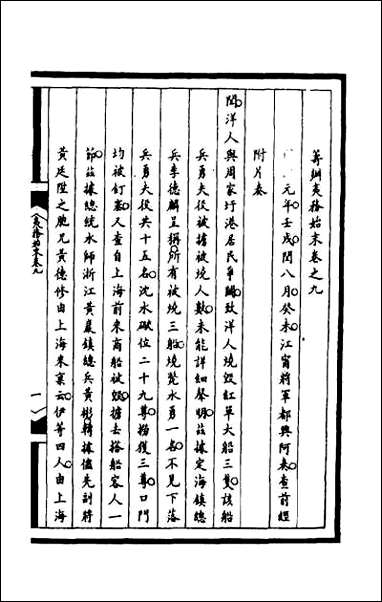 籌辦夷務始末卷之九
元年壬戌閏八月癸未江寗將軍都興阿奏查前經
附片奏
聞洋人與周家圩港居民爭鬧致洋人燒毀紅單大船三隻該船
兵勇夫役被擄被燒人數未能詳細聲明茲據定海鎮總
兵李德麟呈稱所有被燒三船燒斃水勇一名不見下落
兵勇夫役共十五名沈水礮位二十九尊撈獲三尊口門
均被釘塞又查自上海前來商船被毀擄去搭船客人一
節茲據總統水師浙江黃巖鎮總兵黃彬轉據儘先副將
黃廷陞之胞兄黃德修由上海來稟云伊等四人由上海
夷務始末卷九
一